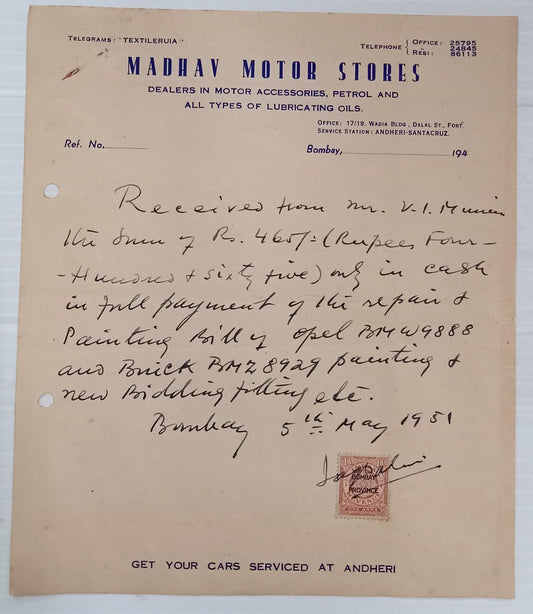 TELEGRAMS: "TEXTILERUIA"
TELEPHONE { OFFICE: 25795
24845
RESI: 86113
MADHAV MOTOR STORES
DEALERS IN MOTOR ACCESSORIES, PETROL AND
ALL TYPES OF LUBRICATING OILS.
OFFICE: 17/19, WADIA BLDG., DALAL ST., FORT.
SERVICE STATION: ANDHERI-SANTACRUZ.
Ref. No.
Bombay, 194
Received from Mr. V. I.
the Sum of Rs. 465/= (Rupees Four-
-Hundred & Sixty five) only in cash
in full payment of the repair &
Painting Bill of Opel BMW9888
and Buick BMZ8929 painting &
new Bidding fitting etc.
Bombay 5th May 1951
BOMBAY
PROVINCE
ONE ANNA
GET YOUR CARS SERVICED AT ANDHERI